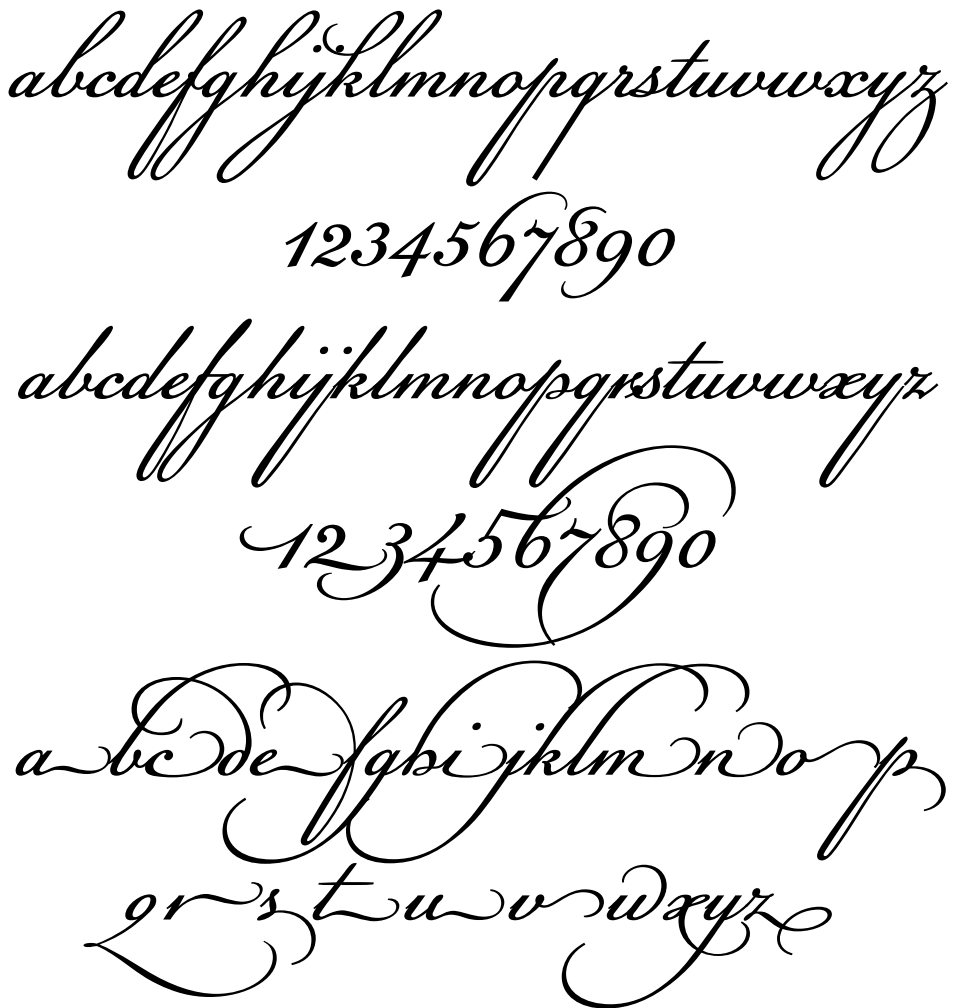 abcdefghijklmnopqrstuvwxyz
1234567890
abcdefghijklmnopqrstuvwxyz
1234567890
abcdefghijklmnop
qrstuvwxyz